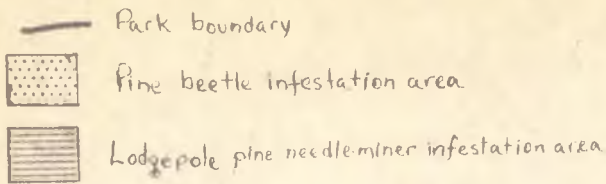 Park boundary
Pine beetle infestation area
Lodgepole pine needle-miner infestation area